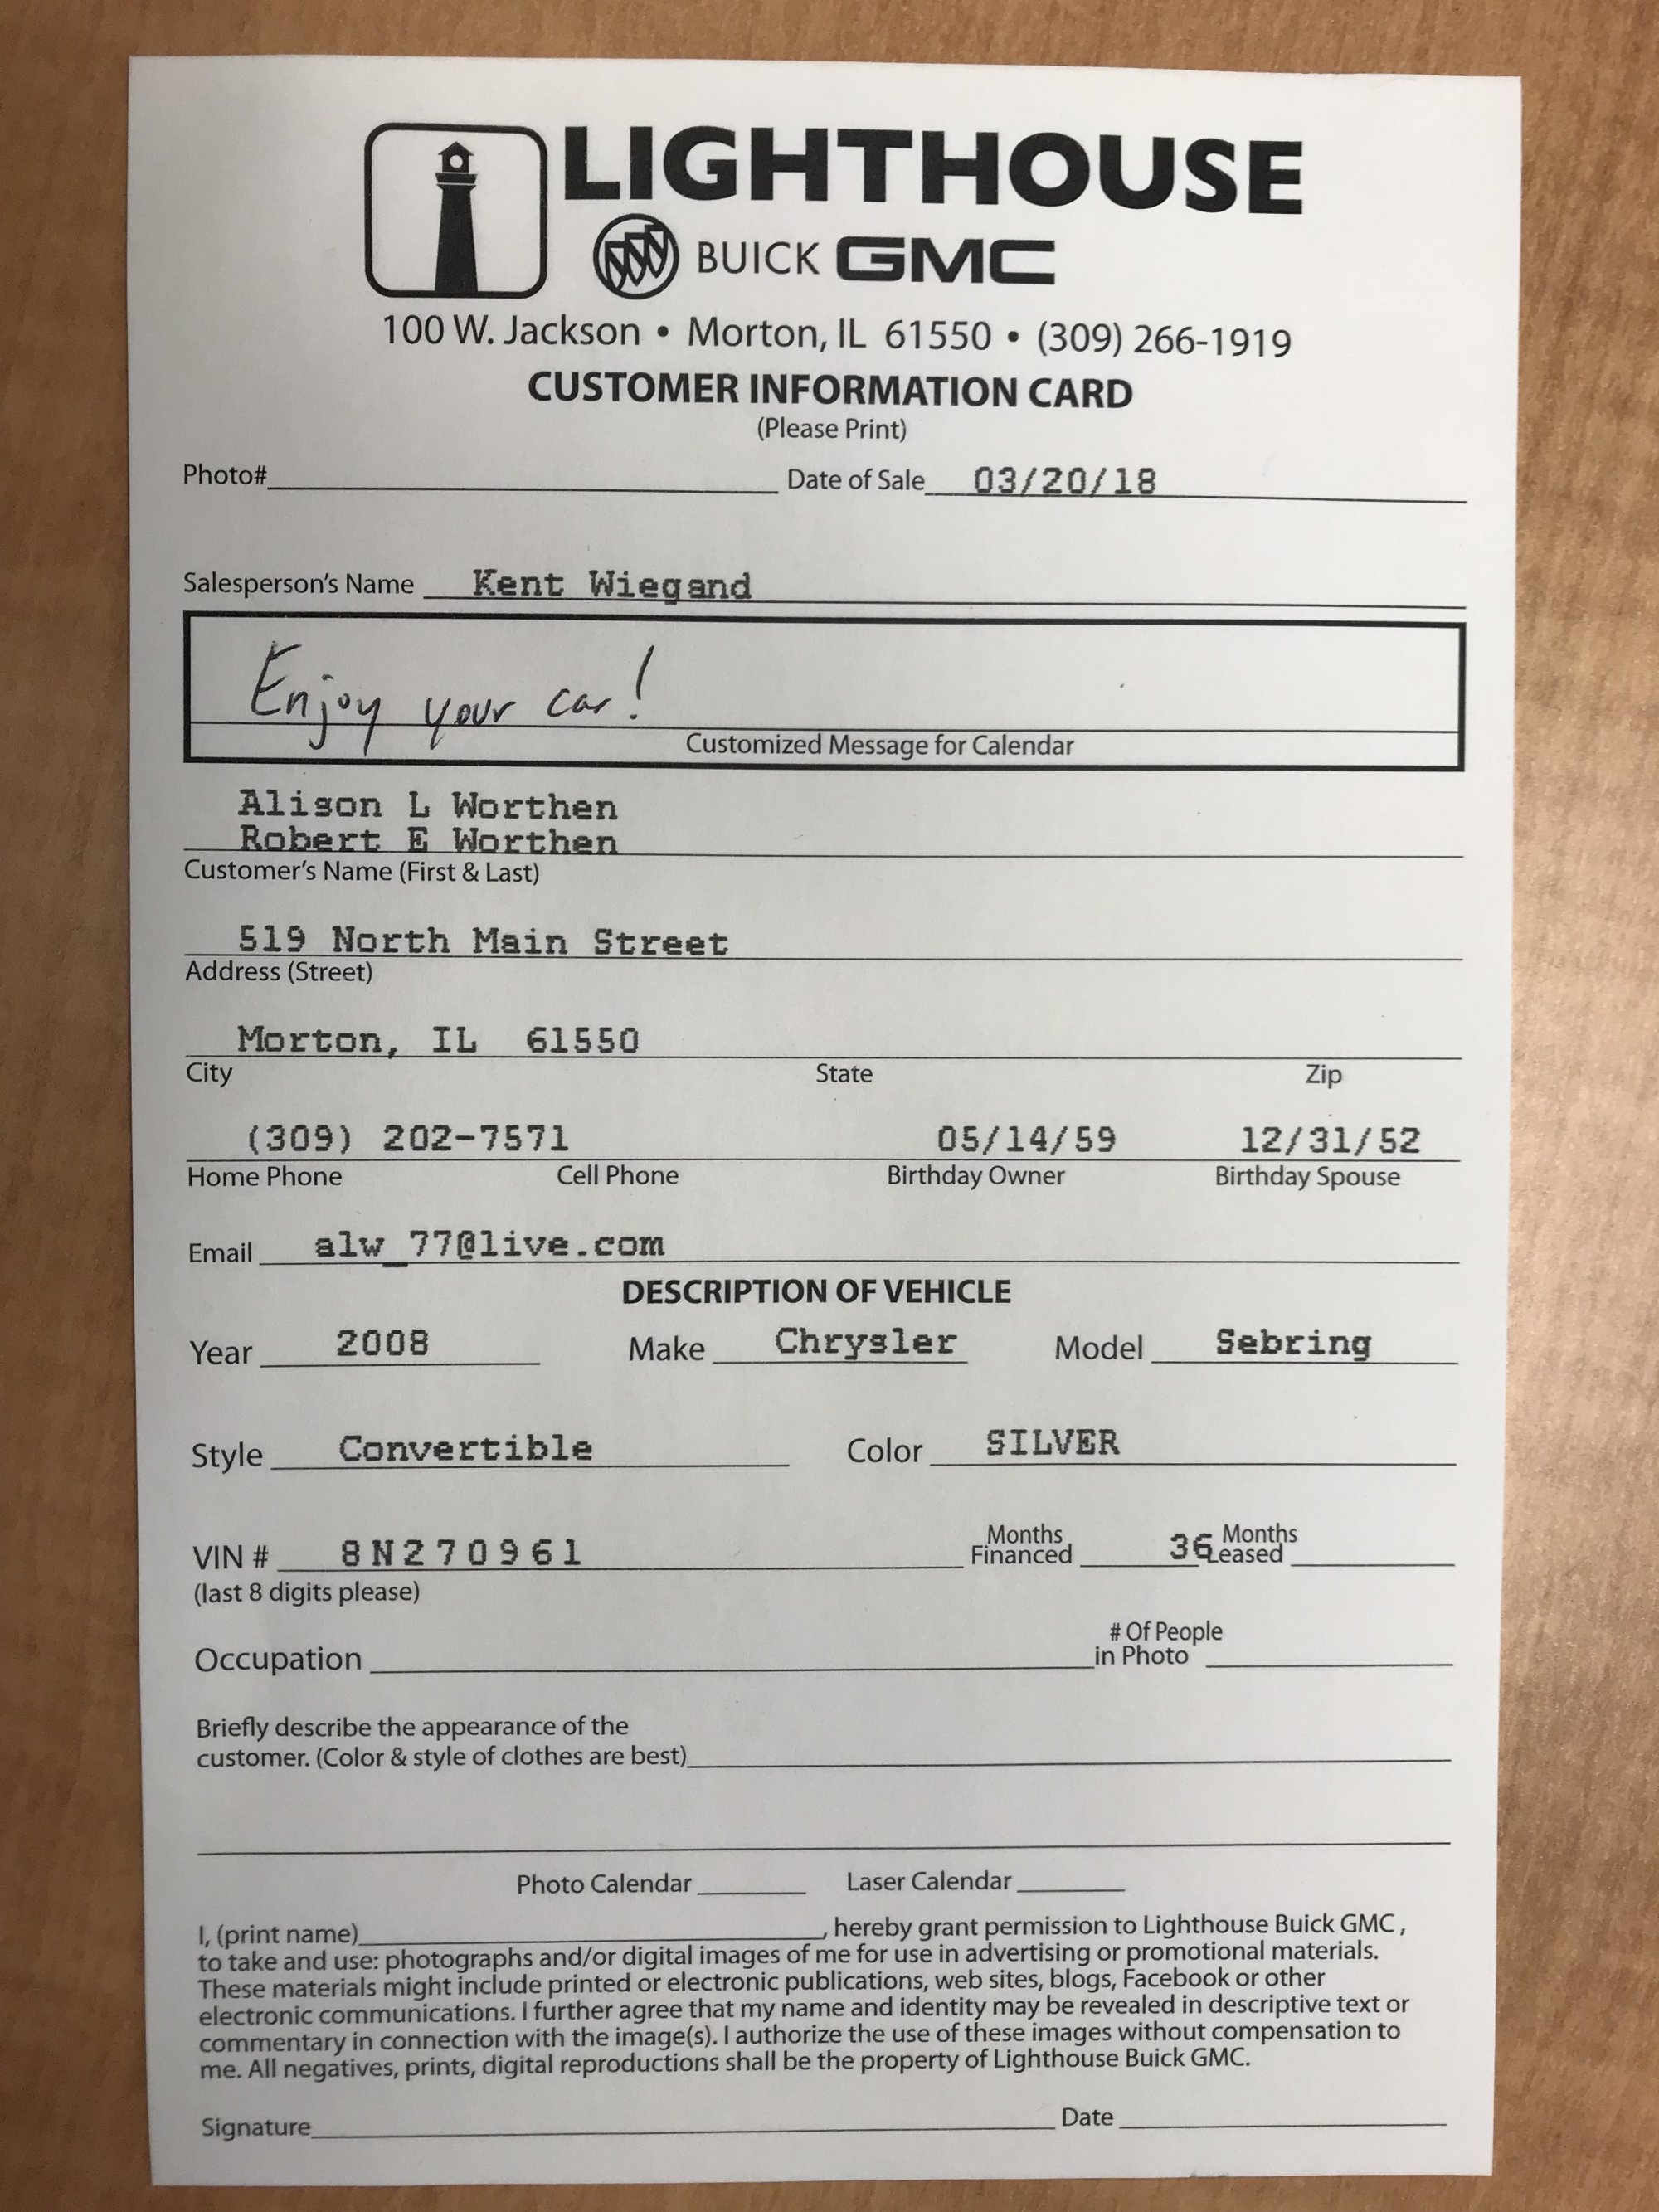 LIGHTHOUSE
BUICK GMC
100 W. Jackson • Morton, IL 61550 • (309) 266-1919
CUSTOMER INFORMATION CARD
(Please Print)
Photo# Date of Sale 03/20/18
Salesperson's Name Kent Wiegand
Enjoy your car!
Customized Message for Calendar
Alison L Worthen
Robert E Worthen
Customer's Name (First & Last)
519 North Main Street
Address (Street)
Morton, IL 61550
City State Zip
(309) 202-7571 05/14/59 12/31/52
Home Phone Cell Phone Birthday Owner Birthday Spouse
Email alw_77@live.com
DESCRIPTION OF VEHICLE
Year 2008 Make Chrysler Model Sebring
Style Convertible Color SILVER
VIN # 8N270961 Months Financed 36 Months Leased
(last 8 digits please)
Occupation # Of People in Photo
Briefly describe the appearance of the
customer. (Color & style of clothes are best)
Photo Calendar Laser Calendar
I, (print name) , hereby grant permission to Lighthouse Buick GMC ,
to take and use: photographs and/or digital images of me for use in advertising or promotional materials.
These materials might include printed or electronic publications, web sites, blogs, Facebook or other
electronic communications. I further agree that my name and identity may be revealed in descriptive text or
commentary in connection with the image(s). I authorize the use of these images without compensation to
me. All negatives, prints, digital reproductions shall be the property of Lighthouse Buick GMC.
Signature Date